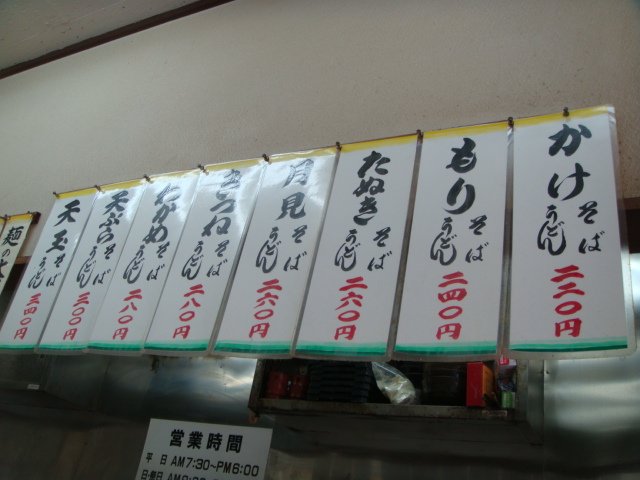 かけ そば うどん 二二〇円
もり そば うどん 二四〇円
たぬき そば うどん 二六〇円
月見 そば うどん 二六〇円
きつね そば うどん 二八〇円
わかめ そば うどん 二八〇円
天ぷら そば うどん 三〇〇円
天玉 そば うどん 三四〇円
麺の
営業時間
平日 AM7:30~PM6:00